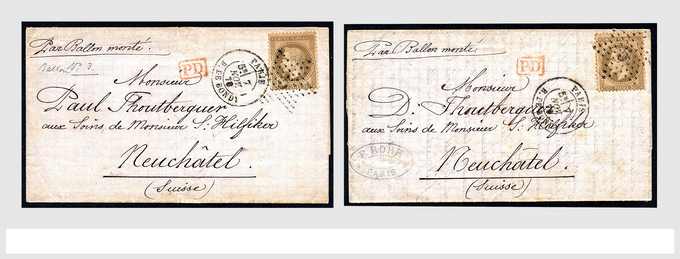 Par Ballon monté.
Ballon N° 3.
PD
PARIS
R. DE BONDY
Monsieur
Paul Thoutberguer
aux Soins de Monsieur S. Hilfiker
Neuchâtel.
(Suisse)
Par Ballon monté.
PD
PARIS
Monsieur
D. Thoutberguer
aux Soins de Monsieur S. Hilfiker
Neuchâtel.
(Suisse)
PARIS